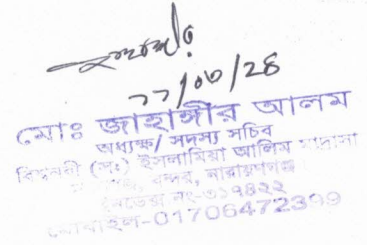 ১১/০৩/২৪
মোঃ জাহাঙ্গীর আলম
অধ্যক্ষ/ সদস্য সচিব
বিশ্বনবী (সঃ) ইসলামিয়া আলিম মাদ্রাসা
বন্দর, নারায়ণগঞ্জ
ইনডেক্স নং-৩১৭৪২২
মোবাইল-01706472399